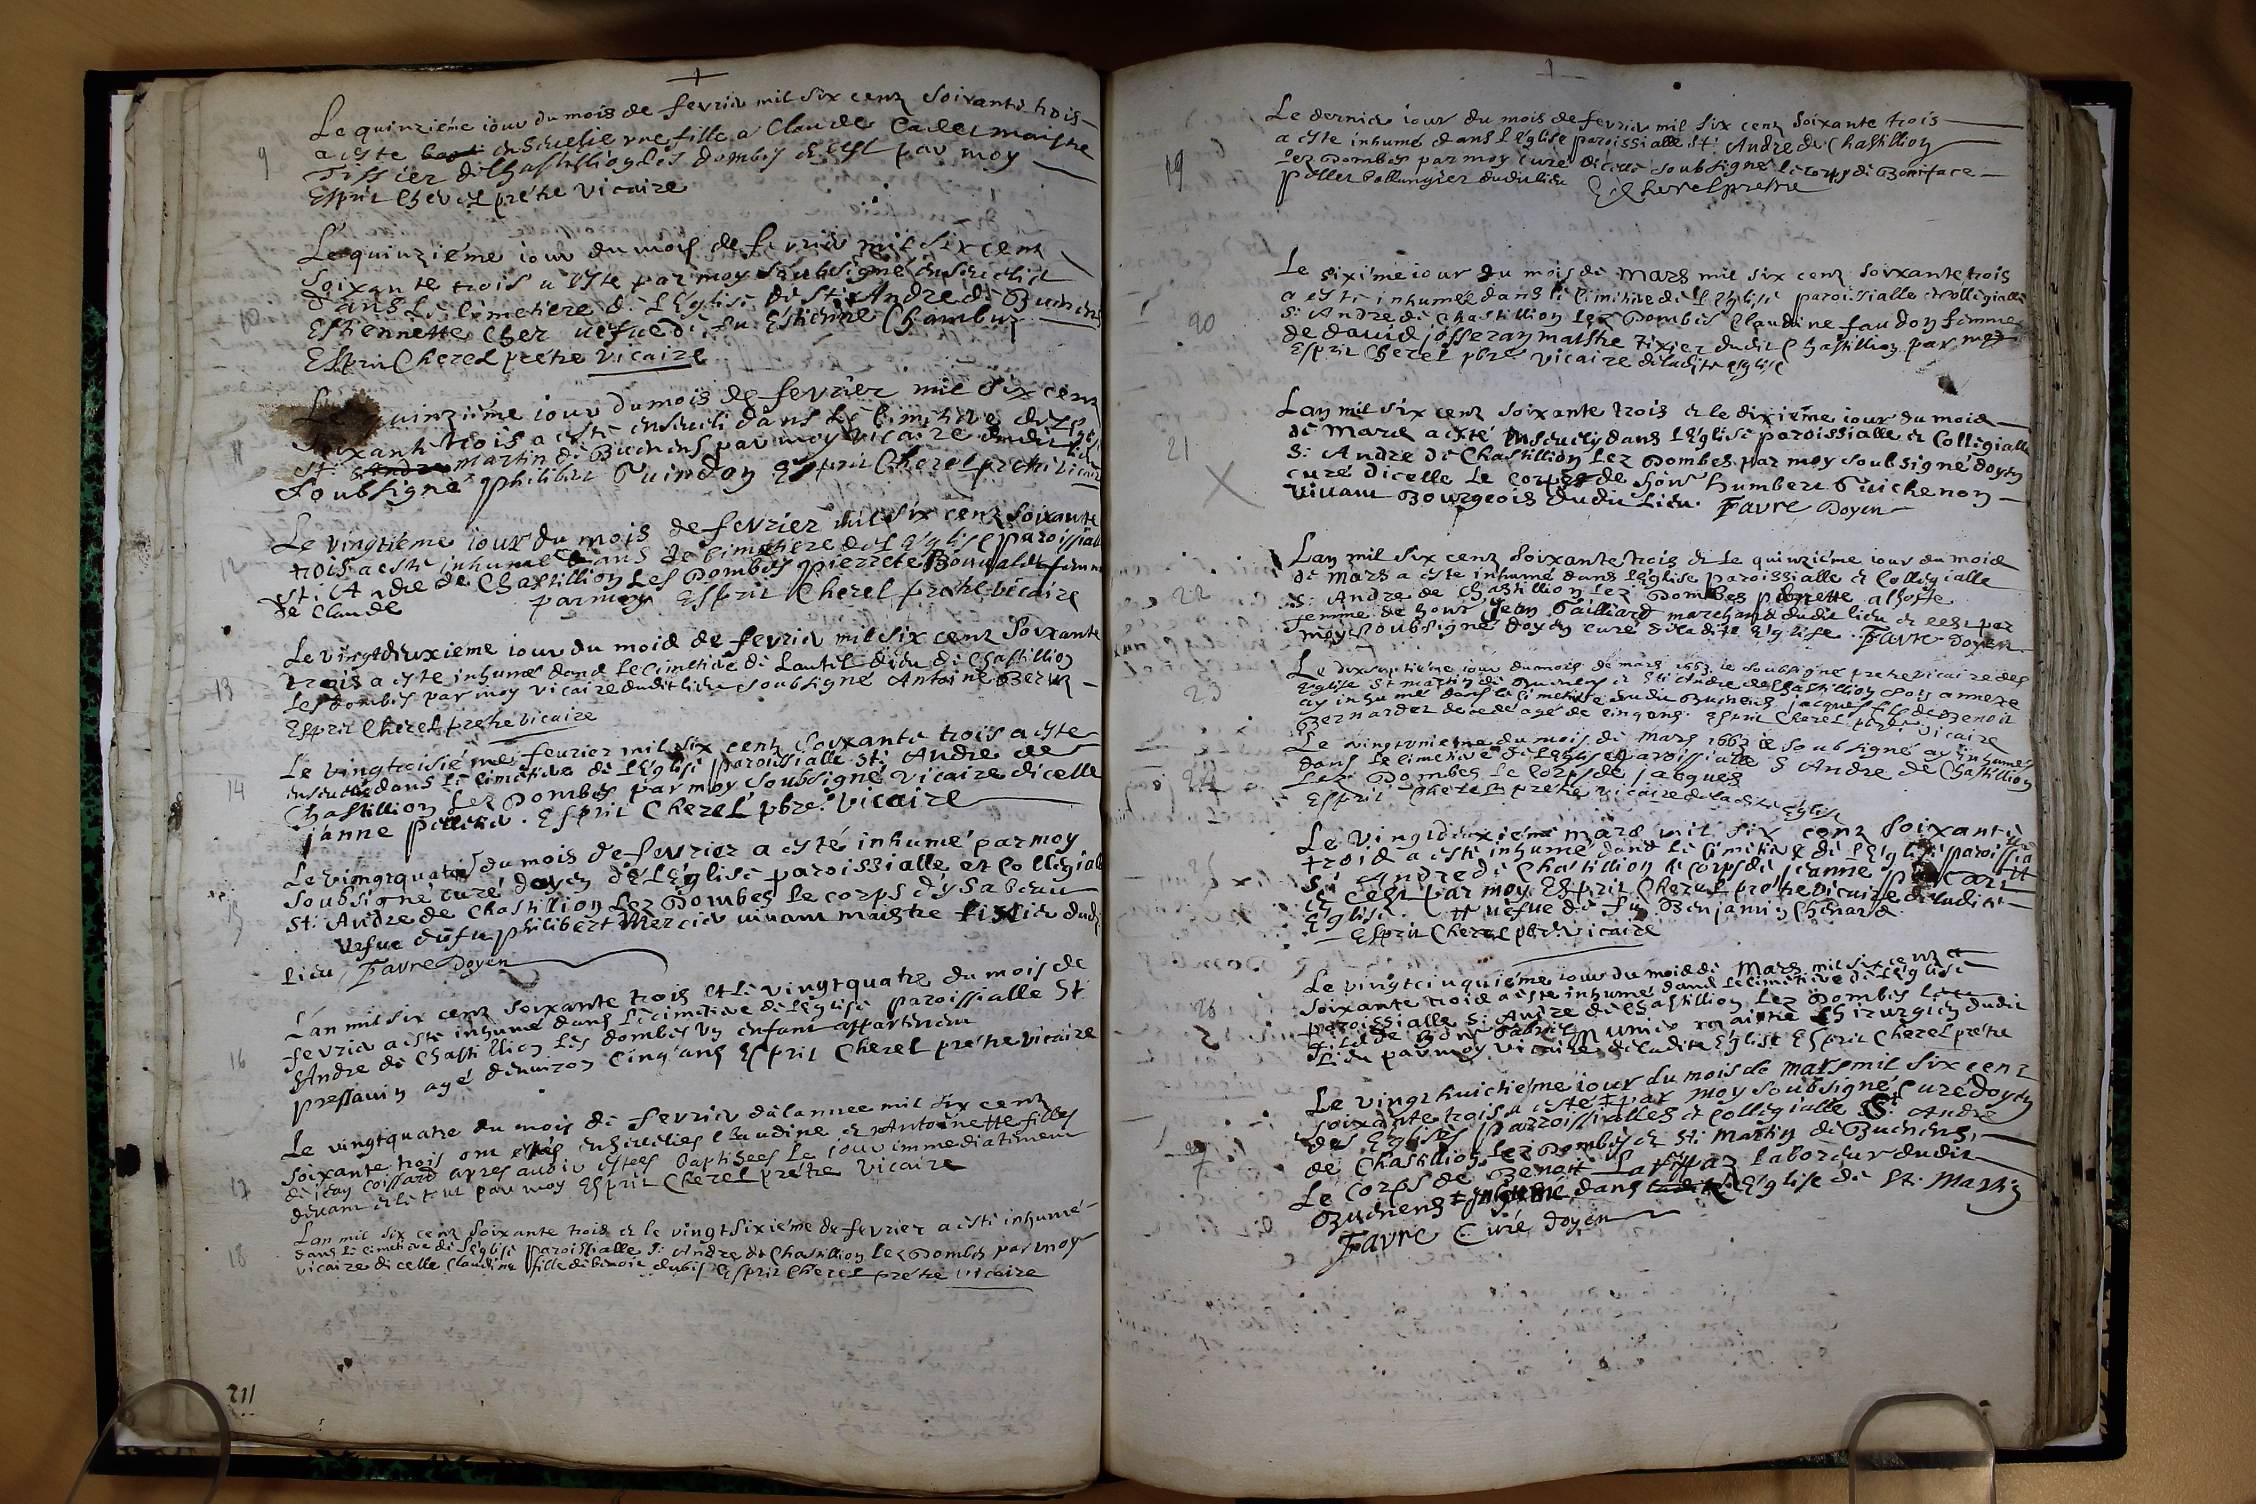 Le quinziéme iour du mois de fevrier mil six cenz soixante trois
9
a esté enseuelie une fille a Claude Cadet maistre
Tissier de Chastillion les dombes et cest par moy
Esprit Cherel prétre vicaire
Le quinziéme iour du mois de fevrier mil six cenz
soixante trois a esté par moy soubsigné enseuelie
dans le cemetiere de l'Eglise de St Andre de Buenens
Estiennette Cher uefue de fu Estienne Chambur
Esprit Cherel prétre vicaire
Le quinziéme iour du mois de fevrier mil six cenz
11
soixante trois a esté enseueli dans le cimetiere de
St. martin de Buenens par moy vicaire dudit lieu
soubsigné philibert Guindon Esprit Cherel prétre vicaire
Le vingtiéme iour du mois de fevrier mil six cenz soixante
12
trois a esté inhumé dans le cimetiere de l'Eglise paroissialle
St. Andre de Chastillion les Dombes pierrete femme
de Claude par moy Esprit Cherel prétre vicaire
Le vingtdeuxieme iour du mois de fevrier mil six cenz soixante
13
trois a esté inhumé dans le cimetiere de Lautel dieu de Chastillion
les dombes par moy vicaire dudit lieu soubsigné Antoine
Esprit Cherel prétre vicaire
Le vingtroisiéme fevrier mil six cenz soixante trois a esté
14
enseuelie dans le cimetiere de l'Eglise paroissialle St. Andre de
Chastillion Lez Dombes par moy soubsigné vicaire dicelle
janne . Esprit Cherel pbre. vicaire
Le vingtquatre du mois de fevrier a esté inhumé par moy
15
soubsigné curé doyen de l'Eglise paroissialle et Collegialle
St. Andre de Chastillion Lez Dombes le corps dysabeau
uefue du fu philibert Mercier uiuant maistre tixier dudi
lieu Favre Doyen
L'an mil six cenz soixante trois et le vingtquatre du mois de
16
fevrier a esté inhumé dans le cimetiere de l'Eglise paroissialle St
Andre de Chastillion les dombes un enfant appartenant
pressauin agé denuiron cinq ans Esprit Cherel prétre vicaire
Le vingtquatre du mois de fevrier de lannee mil six cenz
17
soixante trois ont estés enseuelies Claudine et Antoinette filles
de jean Coissard apres auoir estees baptisees le iour immediatement
deuant et le tout par moy Esprit Cherel prétre vicaire
Lan mil six cenz soixante trois et le vingtsixiéme de fevrier a esté inhumé
18
dans le cimetiere de l'Eglise paroissialle St. Andre de Chastillion Lez Dombes par moy
vicaire dicelle Claudine fille de benoit dubis Esprit Cherel prétre vicaire
211
Le dernier iour du mois de fevrier mil six cenz soixante trois
19
a esté inhumé dans l'Eglise paroissialle St. Andre de Chastillion
Lez Dombes par moy curé dicelle soubsigné le corps de Boniface
pellet bollungier dudit lieu E Cherel prestre
Le sixiéme iour du mois de Mars mil six cenz soixante trois
20
a esté inhumée dans le cimetiere de l'Eglise paroissialle et collegialle
St. Andre de Chastillion Lez Dombes Claudine faudon femme
de david josseran maistre tixier dudit Chastillion par moy
Esprit Cherel pbre vicaire de ladite eglise
Lan mil six cenz soixante trois et le dixiéme iour du mois
21
de Mars a esté enseuely dans l'Eglise paroissialle et Collegialle
St. Andre de Chastillion Lez Dombes par moy soubsigné doyen
curé dicelle le corps de honr humbert Guichenon
viuant Bourgeois dudit lieu. Favre Doyen
Lan mil six cenz soixante trois et le quinziéme iour du mois
22
de mars a esté inhumé dans l'Eglise paroissialle et Collegialle
St. Andre de Chastillion Lez Dombes pernette alhoste
femme de honr Jean Gailliard marchand dudit lieu et cest par
moy soubsigné doyen curé de ladite Eglise. Favre Doyen
Le dixseptiéme iour du mois de mars 1663 ie soubsigné pretre vicaire des
23
Eglise St martin de Buenens et St Andre de Chastillion son annexe
ay inhumé dans le cimetiere dudit Buenens jacques fils de Benoit
Bernardet decedé agé de cinq ans. Esprit Cherel pbre vicaire
Le vingtunieme du mois de Mars 1663 ie soubsigné ay inhumés
24
dans le cimetiere de l'Eglise paroissialle S Andre de Chastillion
Lez Dombes le corps de jacques
Esprit Cherel prétre vicaire de ladite Eglise
Le vingtdeuxiéme mars mil six cenz soixante
trois a esté inhumé dans le cimetiere de l'Eglise paroissia
St Andre de Chastillion le corps de jeanne
et cest par moy Esprit Cherel prétre vicaire de ladite
Eglise. # uefue de fu Benjamin Chenard
Esprit Cherel pbre vicaire
Le vingtcinquiéme iour du mois de Mars mil six cenz et
26
soixante trois a esté inhumé dans le cimetiere de l'Eglise
paroissialle St Andre de Chastillion Lez Dombes
fils de honr Gabriel munier maistre Chirurgien dudit
lieu par moy vicaire de ladite Eglise Esprit Cherel prétre
Le vingthuictiéme iour du mois de Mars mil six cenz
soixante trois a esté ‡ par moy soubsigné Curé Doyen
des Eglises parroissialles et Collegialle St Andre
27
de Chastillion Lez Dombes et St Martin de Buenens,
Le corps de Benoit laboreur dudit
Buenens ‡ inhumé dans l'Eglise de St. Martin
Favre Curé doyen